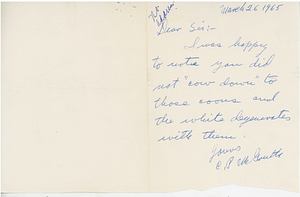 March 26 1965
Dear Sir:-
I was happy
to note you did
not "cow down" to
those coons and
the white degenerates
with them.
Yours
C. R.